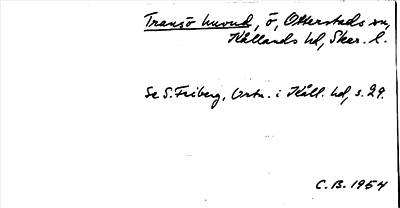 Tranö huvud, ö, Otterstads sn,
Kållands hd, Skar. l.
Se S. Friberg, Ortn. i Kåll. hd, s. 29.
C.B. 1954